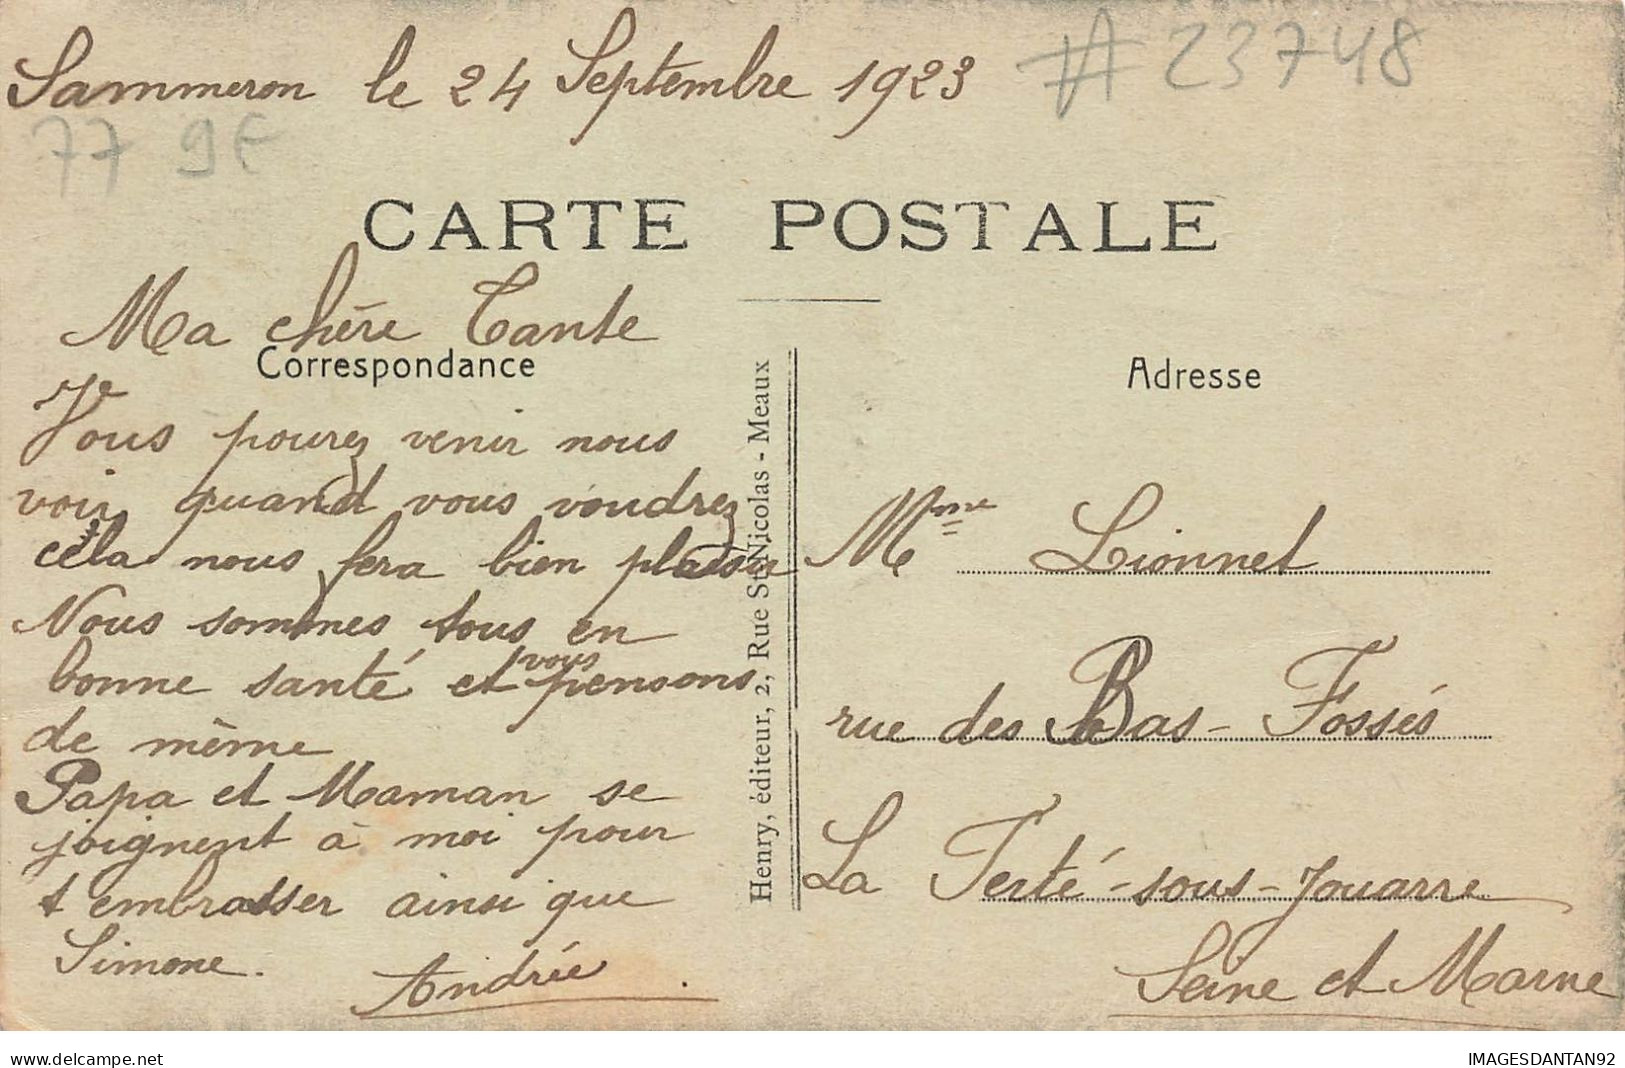 Sammeron le 24 Septembre 1923
# 23748
77 9E
CARTE POSTALE
Ma chère Tante
Correspondance
Je
Vous pourez venir nous
voir quand vous voudrez
cela nous fera bien plaisir
Nous sommes tous en
bonne santé et vous pensons
de même
Papa et Maman se
joignent à moi pour
t embrasser ainsi que
Simone. Andrée.
Henry, éditeur, 2, Rue St-Nicolas - Meaux
Adresse
Mme Lionnet
rue des Bas-Fossés
La Ferté-sous-Jouarre
Seine et Marne
www.delcampe.net
IMAGESDANTAN92